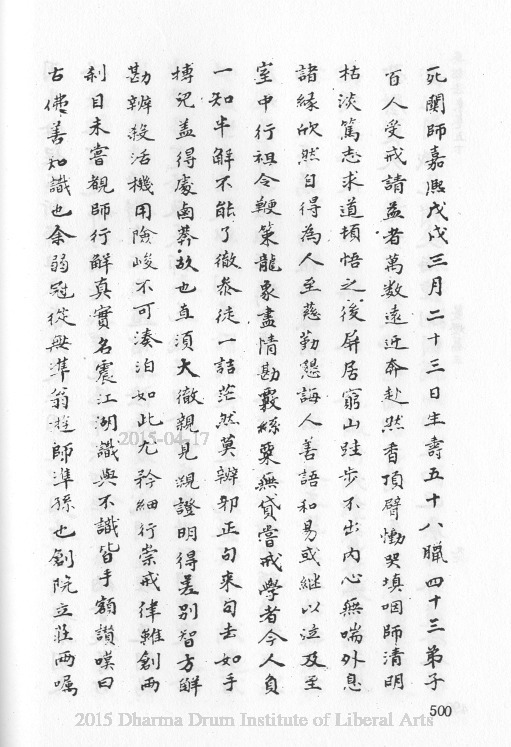 死關師嘉熈戊戌三月二十三日生壽五十八臘四十三弟子
百人受戒請益者萬數遠近奔赴然香頂臂慟哭填咽師清明
枯淡篤志求道頓悟之後屏居窮山跬步不出内心無喘外息
諸緣欣然自得為人至慈勤懇誨人善語和易或継以泣及至
室中行祖令鞭策龍象盡情勘覈絲粟無貸嘗戒學者今人負
一知半解不能了徹叅徒一詰茫然莫辨邪正句来句去如手
摶児盖得處鹵莽故也直須大徹親見親證明得差别智方能觧
勘辨殺活機用險峻不可湊泊如此尤矜細行崇戒律雖創兩
刹目未嘗覩師行觧真實名震江湖識與不識皆手額讃嘆曰
古佛善知識也余弱冠從無準翁遊師準孫也創院立莊兩嘱
500
2015-04-17
2015 Dharma Drum Institute of Liberal Arts